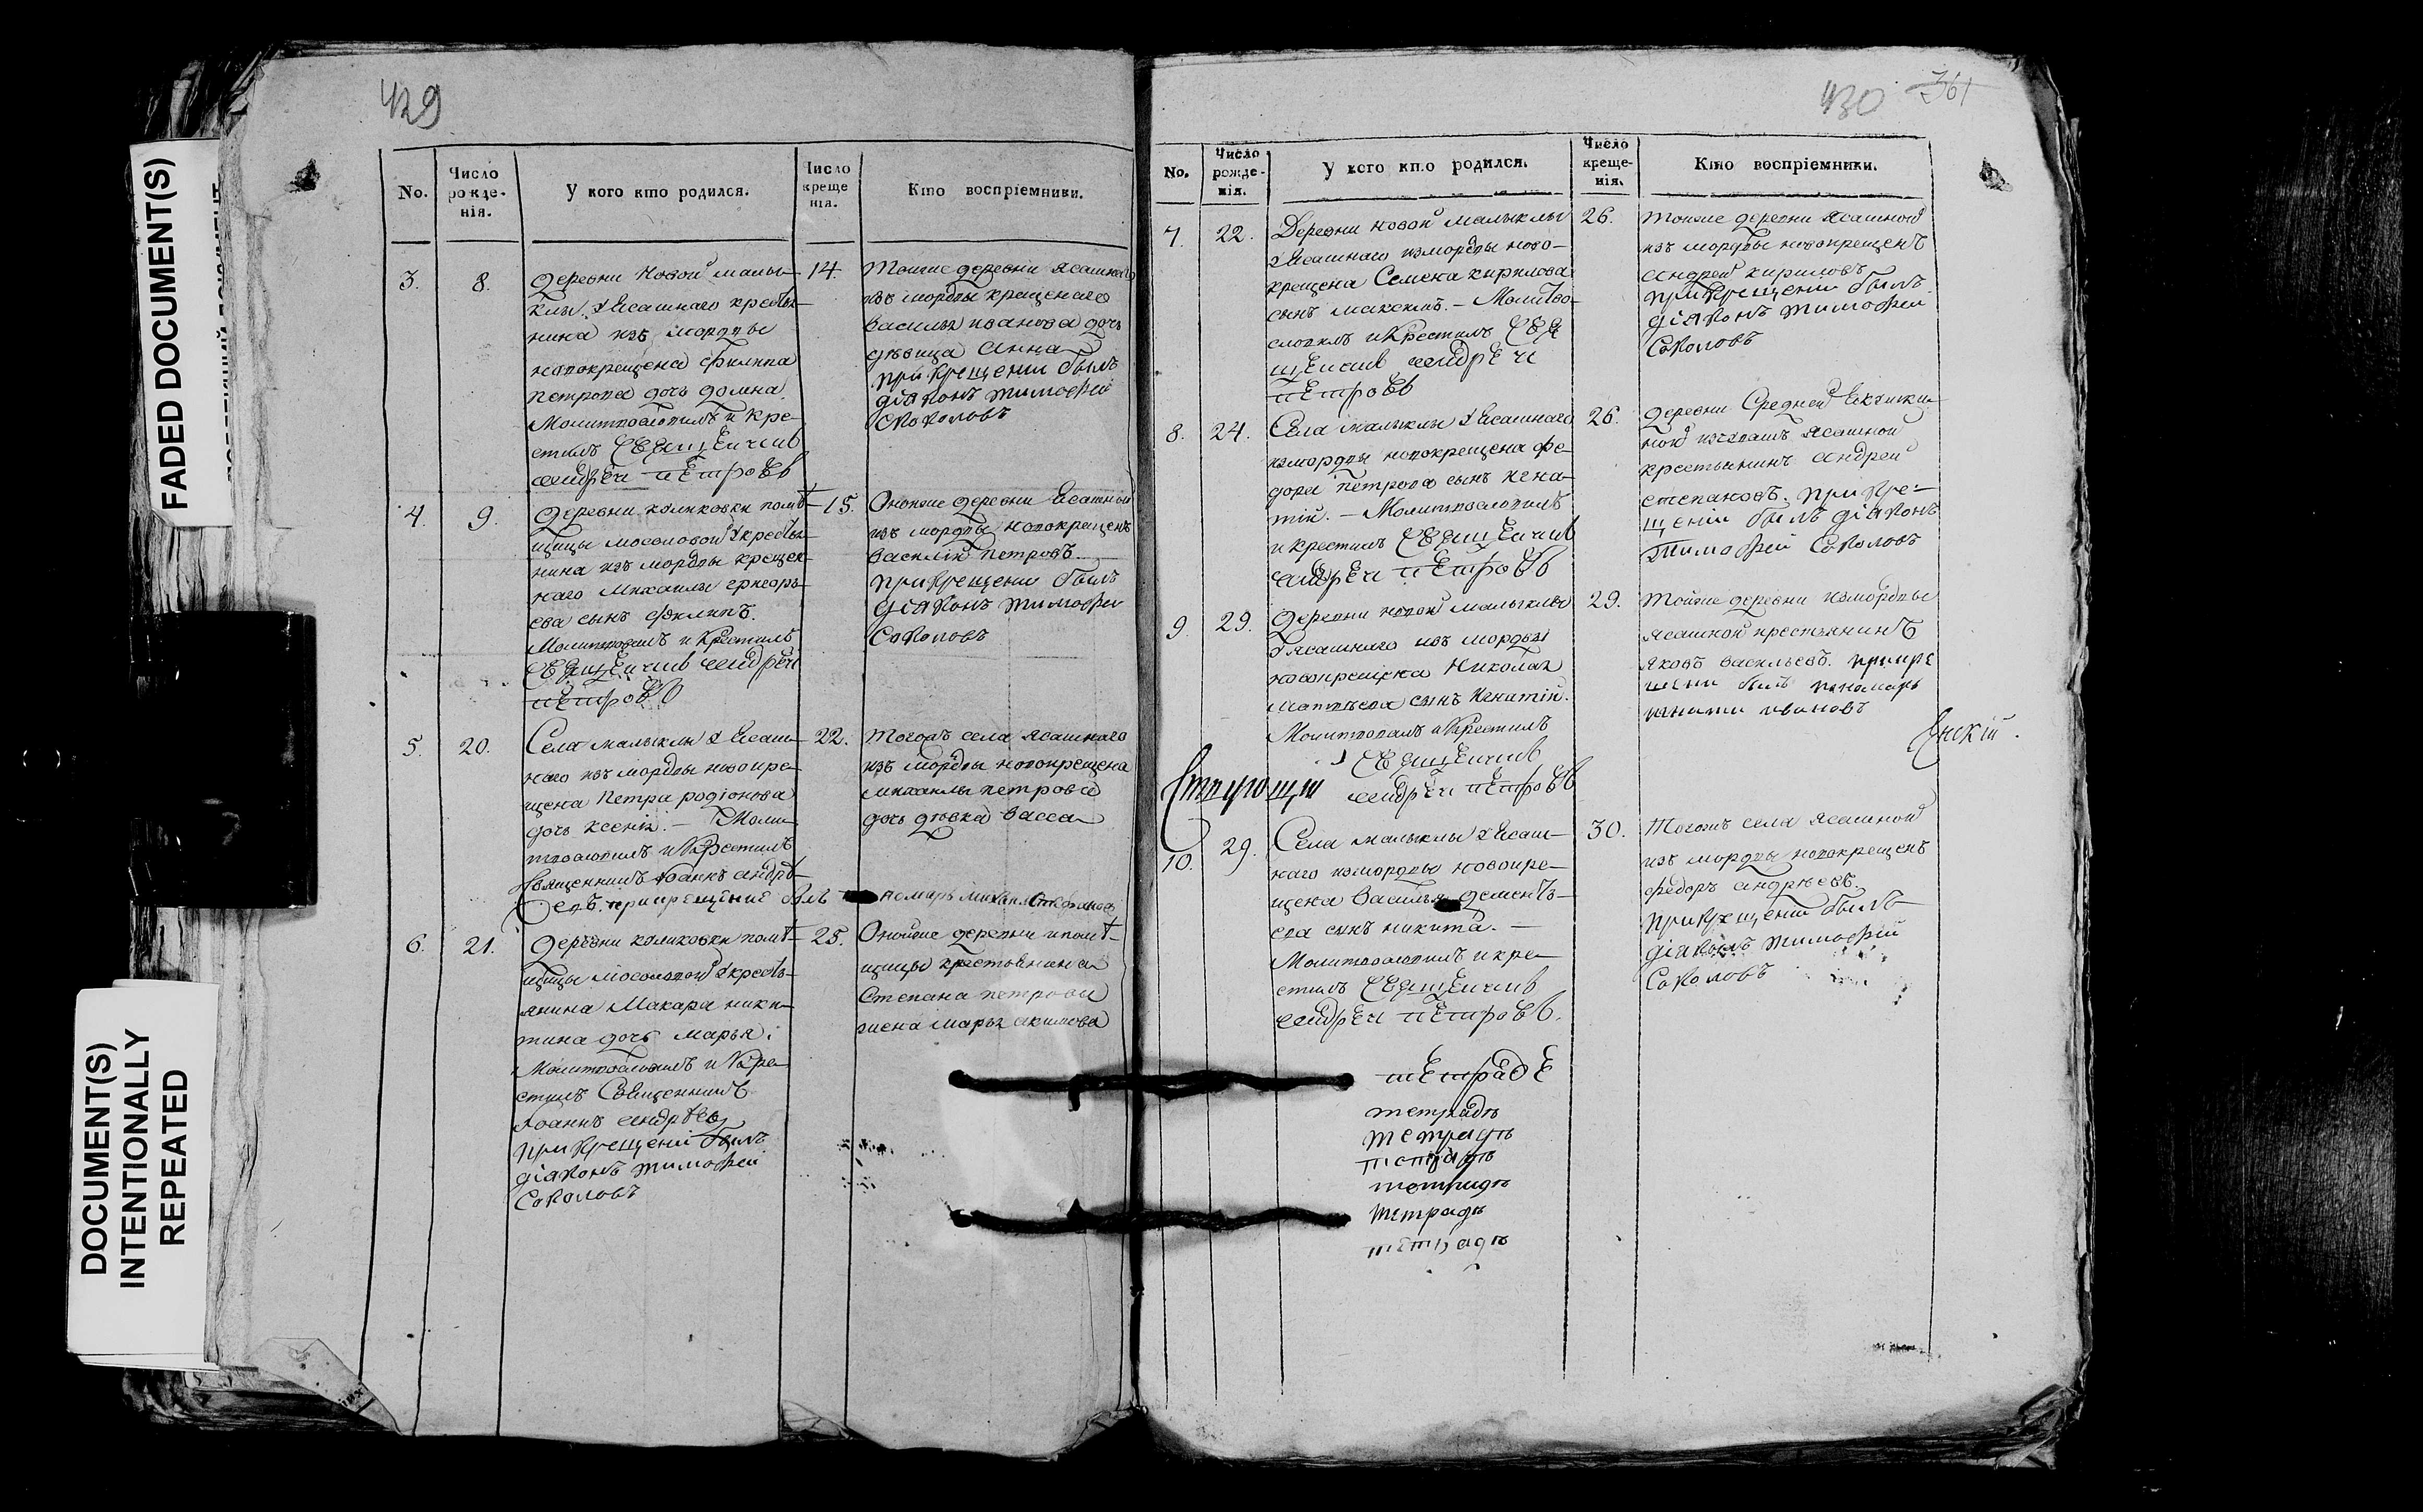 FADED DOCUMENT(S)
DOCUMENT(S)
INTENTIONALLY
REPEATED
429
No.
Число
рожде-
нія.
У кого кто родился.
Число
креще
нія.
Кто воспріемники.
3.
8.
деревни Новой малы-
клы Ясашнаго кресть-
нина изъ мордвы
новокрещена Филипа
Петрова дочь домна
Молитвословилъ и кре-
стилъ Священникъ
Андрей Петровъ
14.
Тойже деревни Ясашнаго
изъ мордвы крещенаго
Василья иванова дочь
дѣвица Анна
при крещении былъ
діаконъ тимофей
Соколовъ
4.
9.
деревни куликовки помѣ-
щицы мосоловой кресть-
нина изъ мордвы крещен-
наго Михаилы
ева сынъ Филипъ.
Молитвовалъ и Крестилъ
Священникъ Андрей
Петровъ
15.
Оной же деревни Ясашный
изъ мордвы новокрещенъ
Василій Петровъ.
при крещени былъ
діаконъ тимофей
Соколовъ
5.
20.
Села малыклы Ясаш-
наго изъ мордвы новокре-
щена Петра родіонова
дочь ксенія. — Моли-
твословилъ и Крестилъ
Священникъ Іоаннъ Андрѣ-
евъ. при крещение былъ пономарь михаил Стефановъ
22.
Тогожъ села Ясашнаго
изъ мордвы новокрещена
михаилы петрова
дочь девка Васса
6.
21.
деревни куликовки помѣ-
щицы Мосоловой кресть-
янина Макара ники-
тина дочь марья.
Молитвословилъ и Кре-
стилъ Священникъ
Іоаннъ Андрѣевъ
при крещеніи былъ
діаконъ тимофей
Соколовъ
25.
Оной же деревни и помѣ-
щицы крестьянина
Степана петрова
жена марья акимова
430 361
No.
Число
рожде-
нія.
У кого кто родился.
Число
креще-
нія.
Кто воспріемники.
7.
22.
Деревни новой малыклы
Ясашнаго измордвы ново-
крещена Семена кирилова
сынъ максимъ. — Молитво-
словилъ и Крестилъ Свя
щенникъ Андрей
Петровъ
26.
тойже деревни Ясашной
изъ мордвы новокрещенъ
Андрей кириловъ
при крещени былъ
діаконъ тимофей
Соколовъ
8.
24.
Села малыклы Ясашнаго
измордвы новокрещена фе-
дора петрова сынъ игна-
тій. — Молитвословилъ
и крестилъ Священникъ
Андрей Петровъ
26.
деревни Средней
ной изчувашъ Ясашной
крестьянинъ Андрей
степановъ. при кре-
щеніи былъ діаконъ
Тимофей Соколовъ
9.
29.
деревни новой малыклы
Ясашнаго изъ мордвы
новокрещена Николая
Матвѣева сынъ игнатій.
Молитвовалъ и Крестилъ
Священникъ
Андрей Петровъ
29.
тойже деревни измордвы
ясашной крестьянинъ
яковъ васильевъ. прикре
щени былъ пономарь
игнати ивановъ
10.
29.
Села малыклы Ясаш-
наго измордвы новокре-
щена Василья дементь-
ева сынъ никита. —
Молитвословилъ и кре-
стилъ Священникъ
Андрей Петровъ.
30.
Тогожъ села Ясашной
изъ мордвы новокрещенъ
федоръ андрѣевъ.
при крещеніи былъ
діаконъ тимофей
Соколовъ
тетрадь
тетрадь
тетрадь
тетрадь
тетрадь
тетрадь